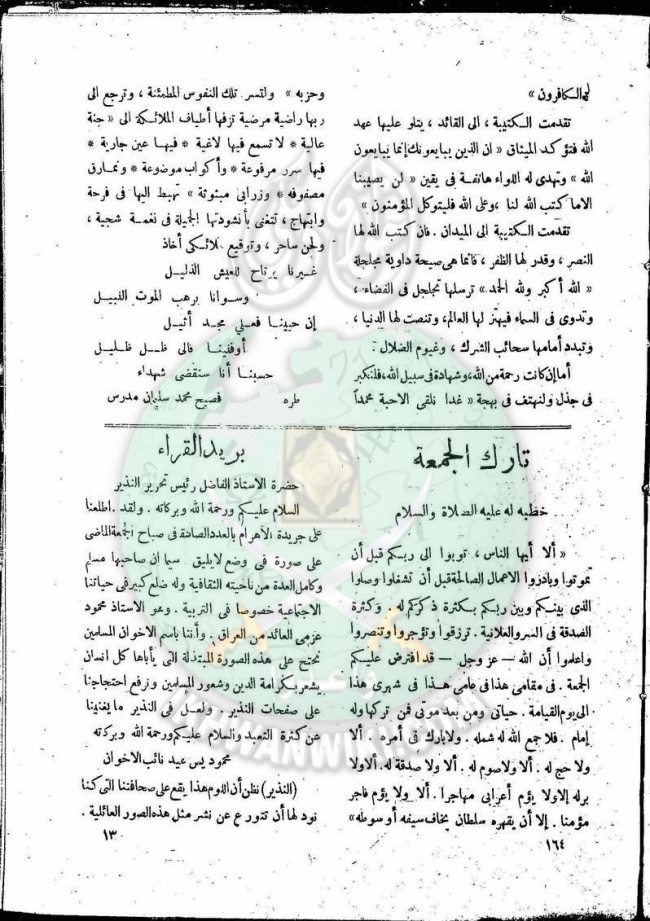 لهم الكافرون »
تقدمت الكتيبة ، الى القائد ، يتلو عليها عهد
الله فتؤكد الميثاق « ان الذين يبايعونك إنما يبايعون
الله » وتهدى له اللواء هاتفة فى يقين « لن يصيبنا
الاما كتب الله لنا ، وعلى الله فليتوكل المؤمنون »
تقدمت الكتيبة الى الميدان . فان كتب الله لها
النصر ، وقدر لها الظفر ، فانما هى صيحة داوية مجلجلة
« الله أكبر ولله الحمد » ترسلها تجلجل فى الفضاء ،
وتدوى فى السماء فيهتز لها العالم، وتنصت لها الدنيا ،
وتبدد أمامها سحائب الشرك ، وغيوم الضلال .
أما إن كانت رحمة من الله، وشهادة فى سبيل الله، فلتكبر
فى جذل ولنهتف فى بهجة « غدا نلقى الاحبة محمداً
وحزبه » ولتسر تلك النفوس المطمئنة ، وترجع الى
ربها راضية مرضية تزفها أطياف الملائكة الى « جنة
عالية * لا تسمع فيها لاغية * فيها عين جارية *
فيها سرر مرفوعة * وأكواب موضوعة * ونمارق
مصفوفه * وزرابي مبثوثة » تهبط اليها فى فرحة
وابتهاج ، لتتغنى بأنشودتها الجميلة فى نغمة شجية ،
ولحن ساحر ، وتوقيع ملائكى أخاذ
غيرنا يرتاح للعيش الذليل
وسوانا يرهب الموت النبيل
إن حيينا فعلي مجد أثيل
أوفنينا فالى ظل ظليل
حسبنا أنا سنقضى شهداء
طره فصيح محمد سليمان مدرس
تارك الجمعة
خطبه له عليه الصلاة والسلام
« ألا أيها الناس ، توبوا الى ربكم قبل أن
تموتوا وبادروا الاعمال الصالحة قبل أن تشغلوا وصلوا
الذى بينكم وبين ربكم بكثرة ذكركم له . وكثرة
الصدقة فى السر والعلانية . ترزقوا وتؤجروا وتنصروا
واعلموا أن الله — عز وجل — قد افترض عليكم
الجمعة . فى مقامى هذا فى عامى هذا فى شهرى هذا
الى يوم القيامة . حياتى ومن بعد موتى فمن تركها وله
إمام . فلا جمع الله له شمله . ولا بارك فى أمره . ألا
ولا حج له . ألا ولا صوم له . ألا ولا صدقة له . ألا ولا
بر له إلا ولا يؤم أعرابى مهاجرا . ألا ولا يؤم فاجر
مؤمنا . إلا أن يقهره سلطان يخاف سيفه أو سوطه »
١٦٤
بريد القراء
حضرة الاستاذ الفاضل رئيس تحرير النذير
السلام عليكم ورحمة الله وبركاته . ولقد . اطلعنا
على جريدة الاهرام بالعدد الصادة فى صباح الجمعة الماضى
على صورة فى وضع لايليق . سيما ان صاحبها مسلم
وكامل العدة من ناحيته الثقافية وله ضلع كبير فى حياتنا
الاجتماعية خصوصا فى التربية . وهو الاستاذ محمود
عزمى العائد من العراق . وأننا باسم الاخوان المسلمين
نحتج على هذه الصورة المبتذلة التى يأباها كل انسان
يشعر بكرامة الدين وشعور المسلمين ونرفع احتجاجنا
على صفحات النذير . ولعل فى النذير ما يغنينا
عن كثرة التعبد والسلام عليكم ورحمة الله وبركاته
محمود يس عيد نائب الاخوان
(النذير) نظن أن اللوم هذا يقع على صحافتنا التى كنا
نود لها أن تتورع عن نشر مثل هذه الصور العائلية .
١٣
IKHWANWIKI.COM